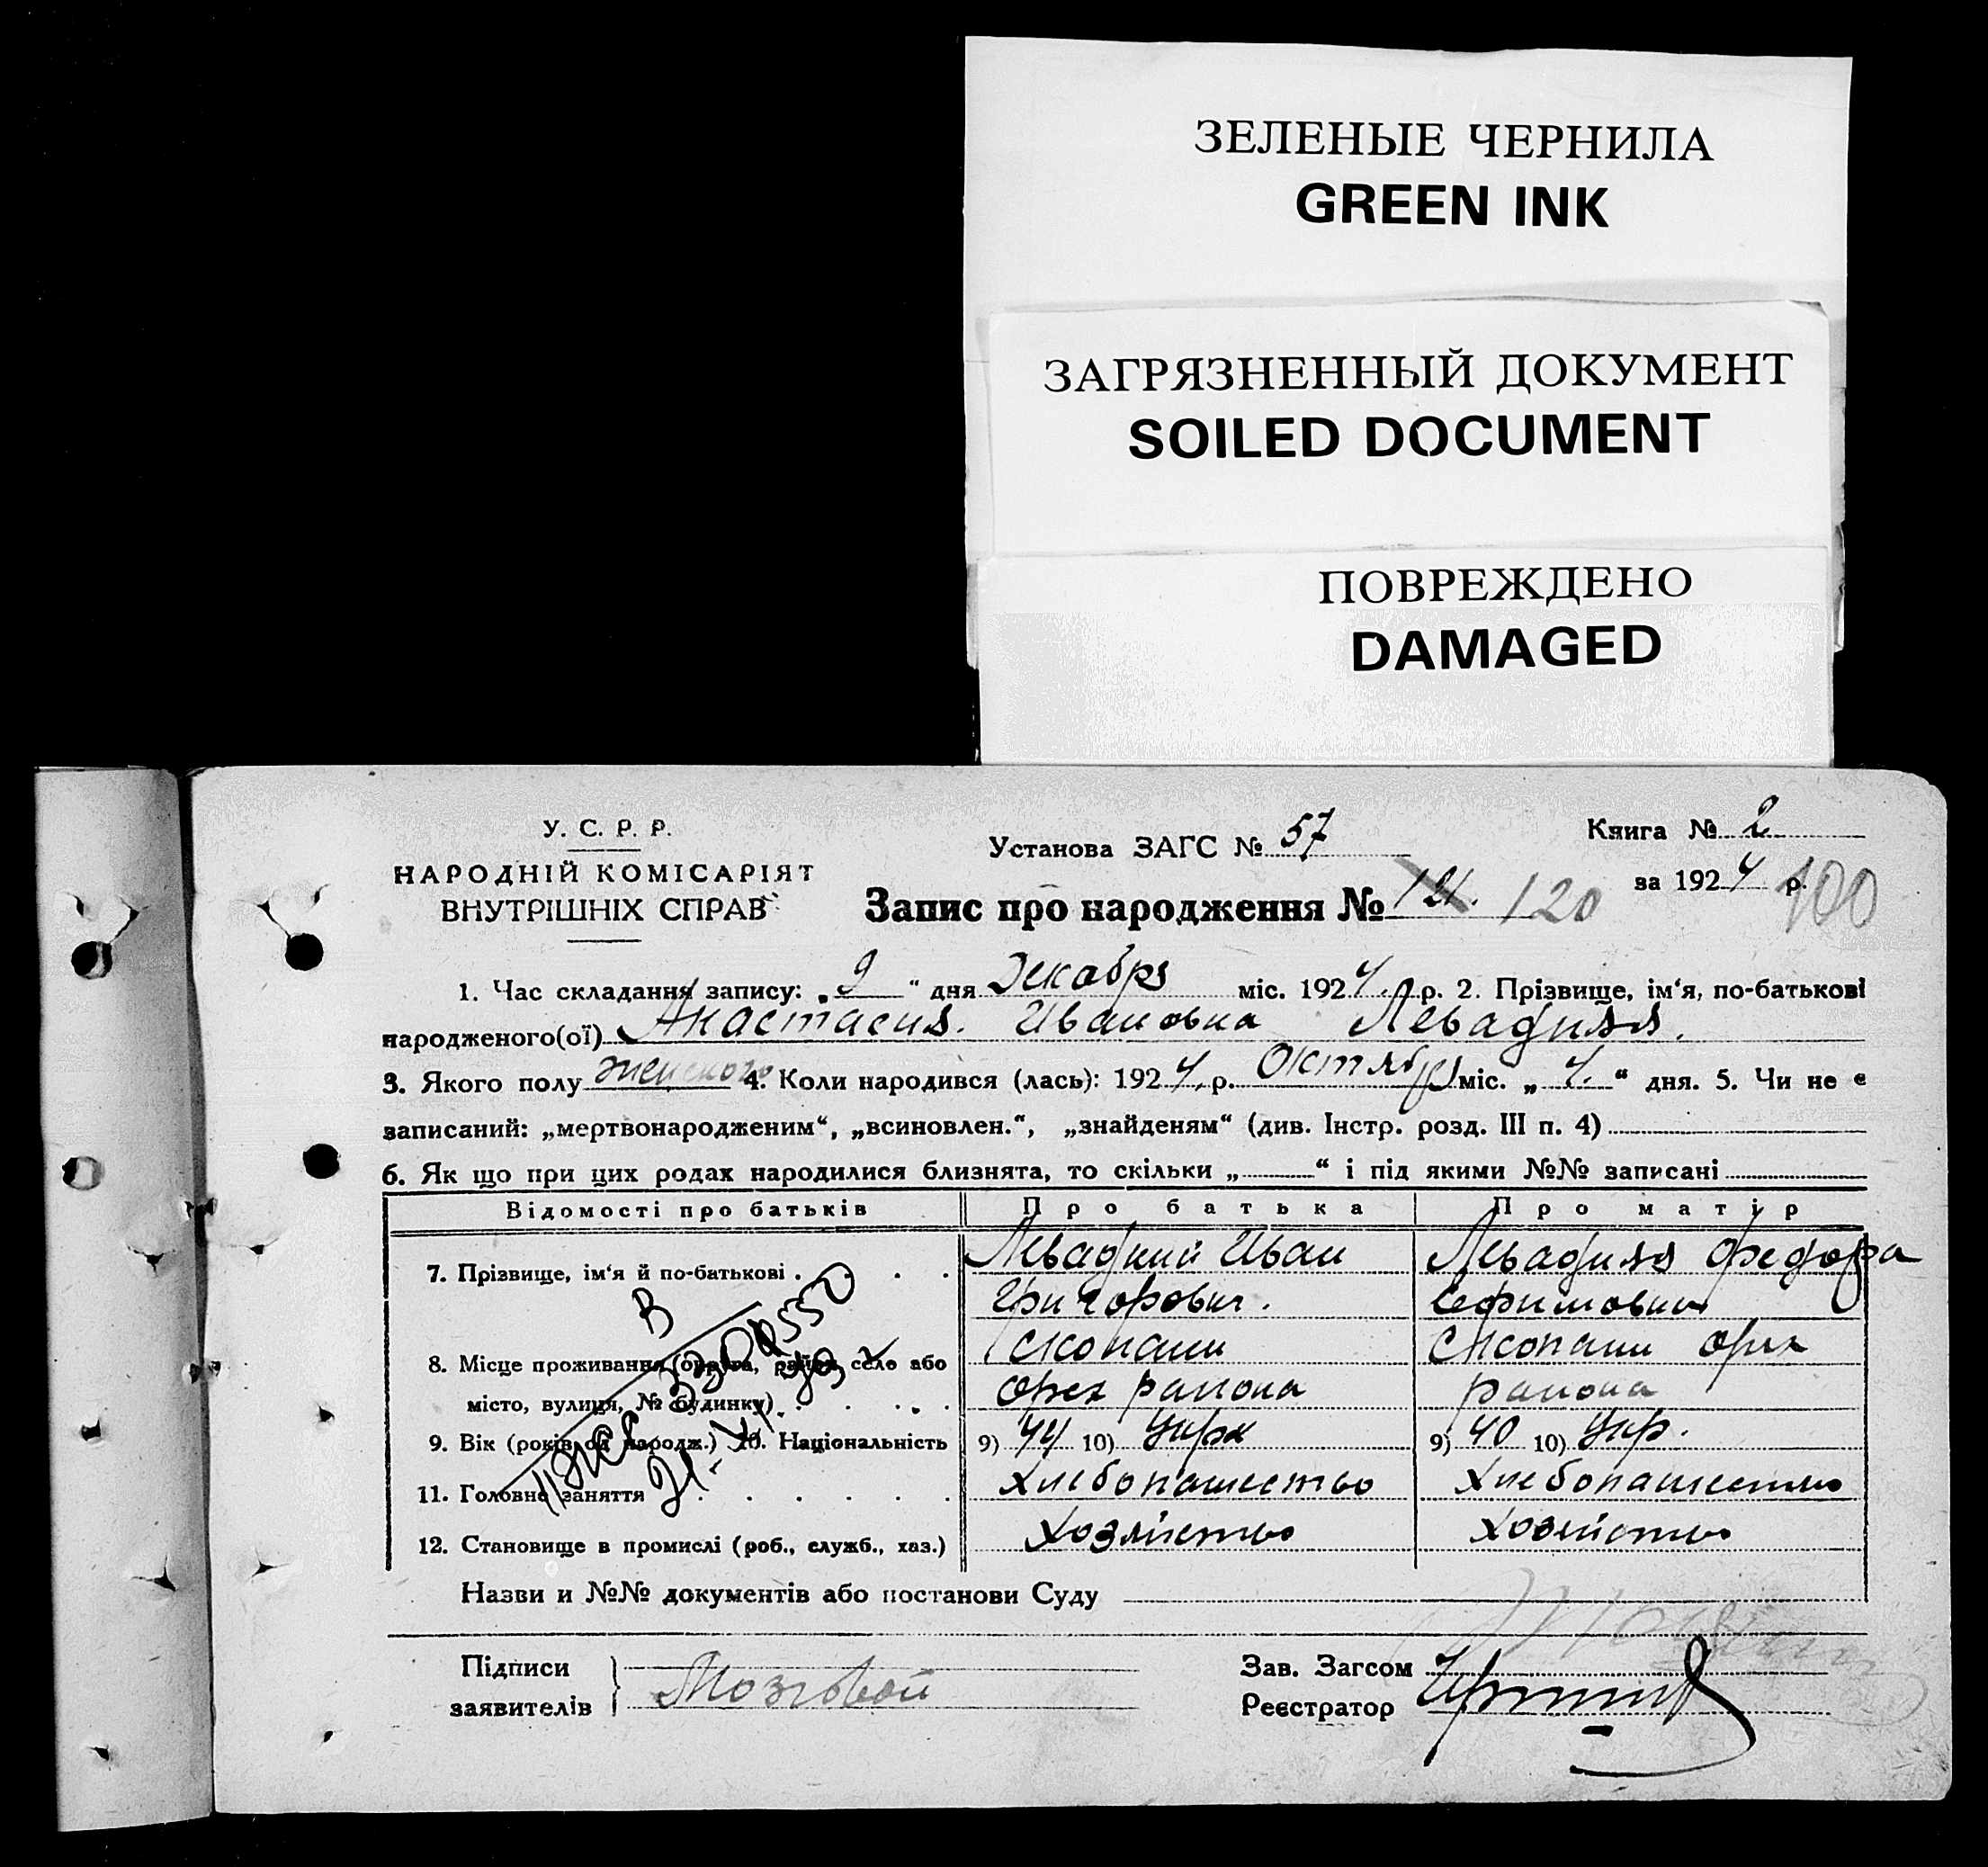 ЗЕЛЕНЫЕ ЧЕРНИЛА
GREEN INK
ЗАГРЯЗНЕННЫЙ ДОКУМЕНТ
SOILED DOCUMENT
ПОВРЕЖДЕНО
DAMAGED
У. С. Р. Р.
НАРОДНІЙ КОМІСАРІЯТ
ВНУТРІШНІХ СПРАВ
Установа ЗАГС № 57
Книга № 2
за 1924 р. 100
Запис про народження № 121. 120
1. Час складання запису: „9“ дня Декабря міс. 1924 р. 2. Прізвище, ім‘я, по-батькові
народженого(ої) Анастасия Ивановна Левадняя.
3. Якого полу женского 4. Коли народився (лась): 1924 р. Октября міс. „4.“ дня. 5. Чи не є
записаний: „мертвонародженим“, „всиновлен.“, „знайденям“ (див. Інстр. розд. III п. 4)
6. Як що при цих родах народилися близнята, то скільки „ “ і під якими №№ записані
Відомості про батьків Про батька Про матір
7. Прізвище, ім‘я й по-батькові Левадний Иван Левадняя Федора
Григорович. Ефимовна
8. Місце проживання (округа, район, село або Скопани Скопани Орех
місто, вулиця, № будинку) Орех района района
9. Вік (років од народж.) 10. Національність 9) 44 10) Укр 9) 40 10) Укр.
11. Головне заняття Хлебопашество Хлебопашество
12. Становище в промислі (роб., служб., хаз.) Хозяйство Хозяйство
В
Назви и №№ документів або постанови Суду
Підписи
заявителів
Мозговой
Зав. Загсом
Реєстратор